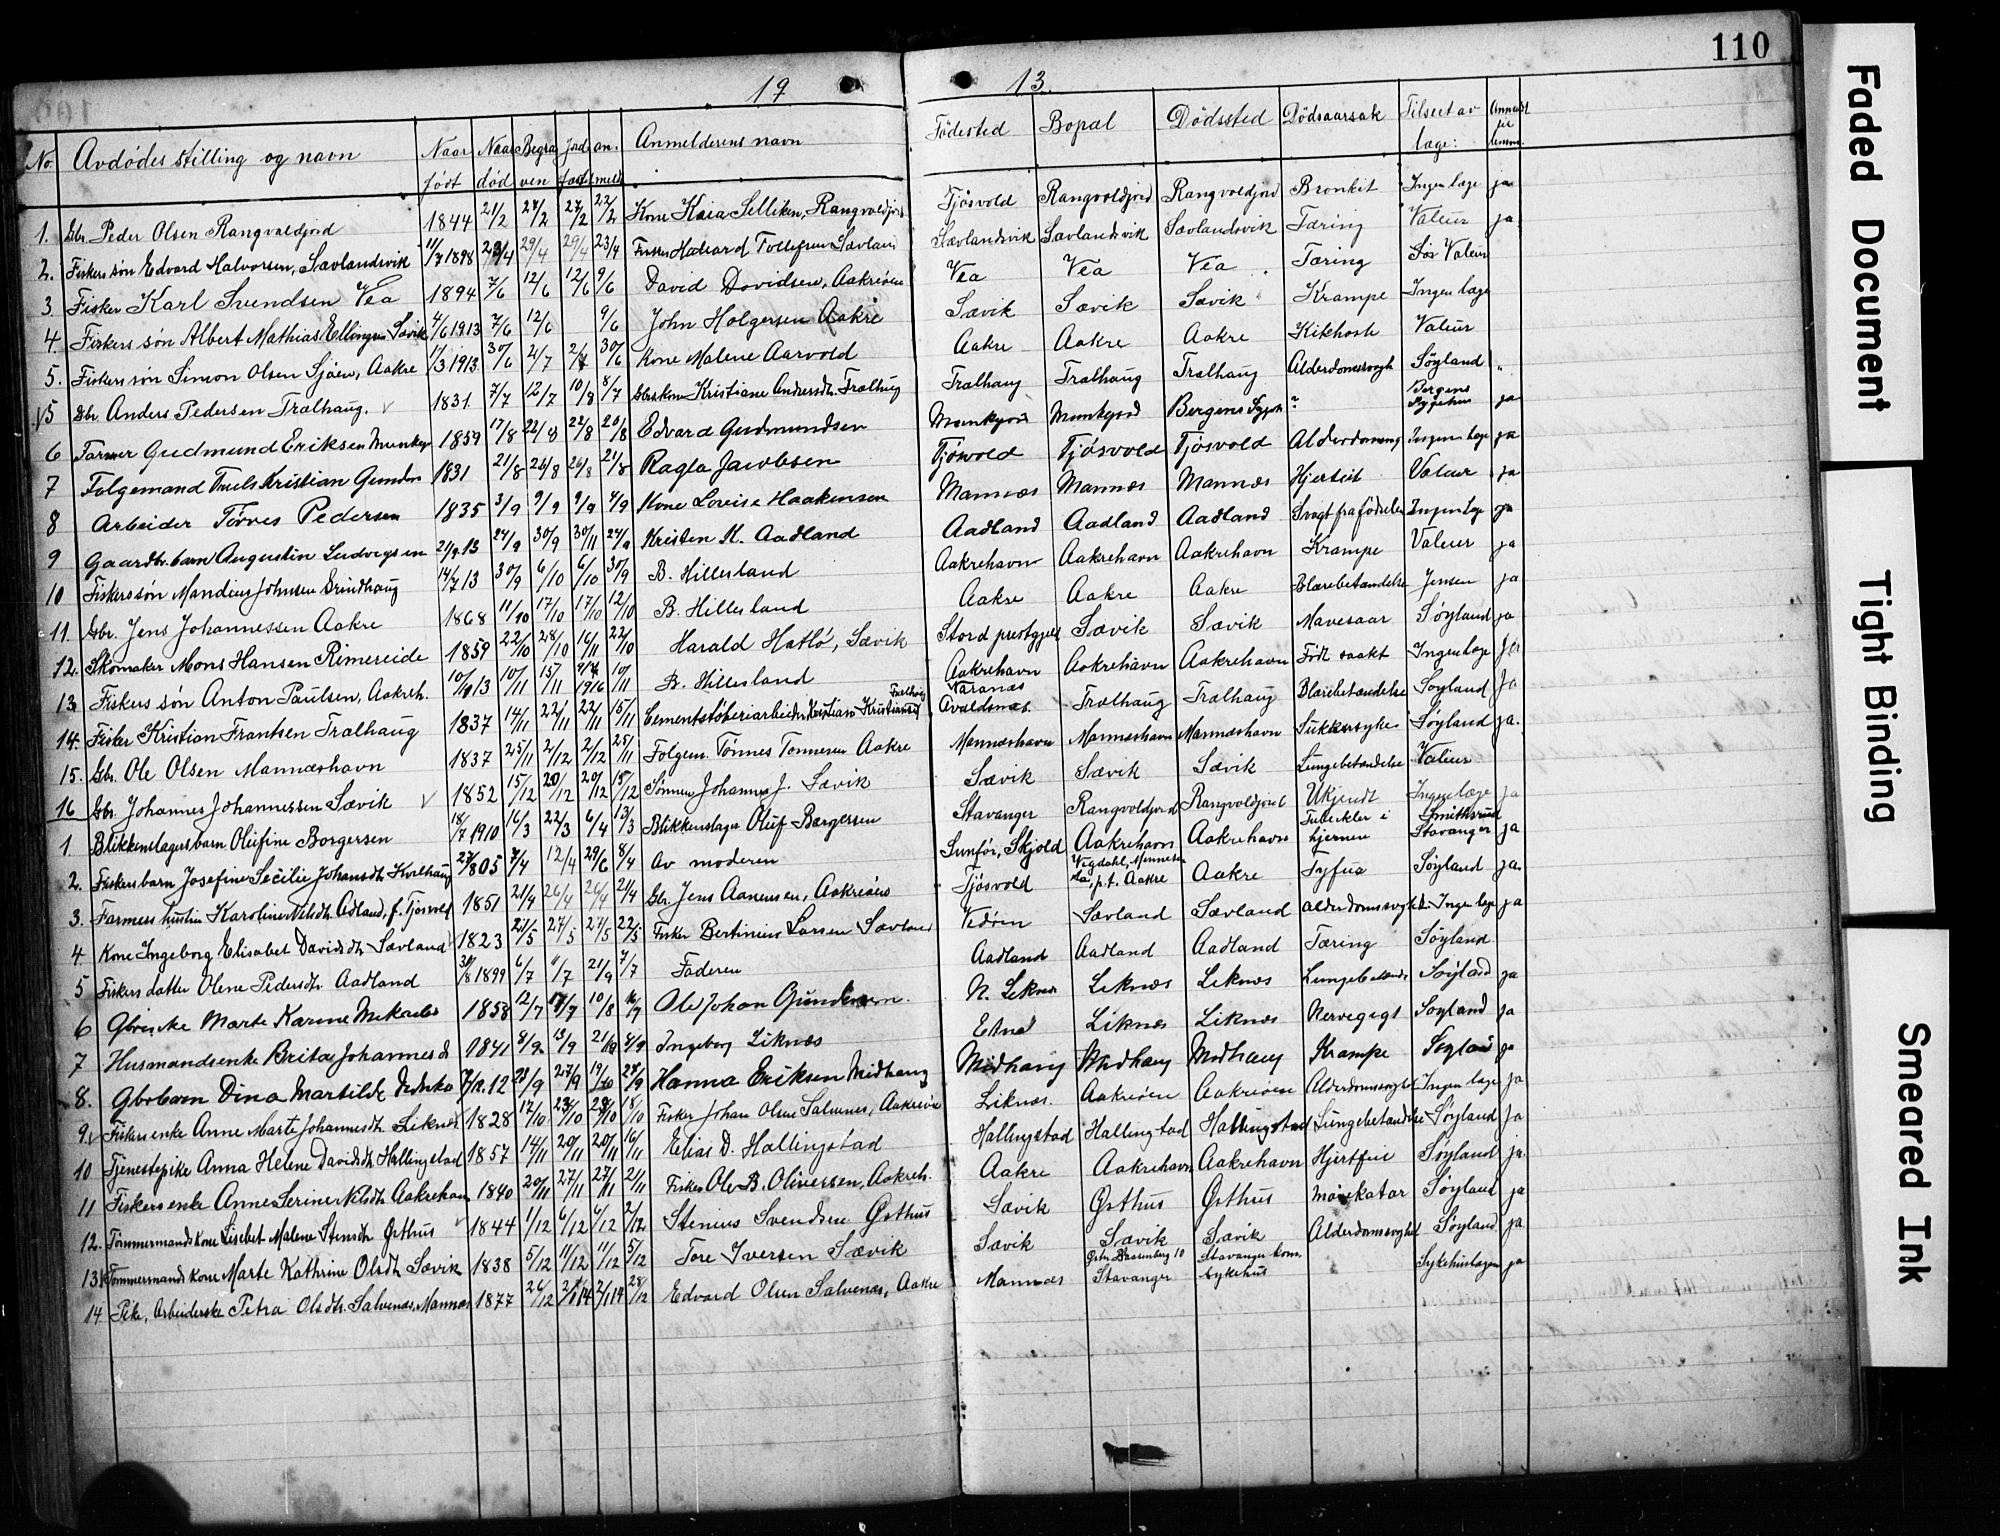 110
19
13.
No. Avdødes stilling og navn Naar født Naar død Begra ven Jord fæst an. meld Anmelderens navn Fødested Bopæl Dødssted Dødsaarsak Tilseet av læge: Anmeldt
1. Gbr. Peder Olsen Rangvaldjord 1844 21/2 27/2 27/2 22/2 Kone Kaia Selliken, Rangvaldjord Tjøsvold Rangvoldjord Rangvoldjord Bronkit Ingen læge ja
2. Fiskers søn Edvard Halvorsen, Sævlandsvik 11/7 1898 23/4 29/4 29/4 23/4 Fisker Halvard Tollefsen Sævland Sævlandsvik Sævlandsvik Sævlandsvik Tæring Valeur ja
3 Fisker Karl Svendsen Vea 1894 7/6 12/6 12/6 9/6 David Davidsen, Aakreøen Vea Vea Vea Tæring Søs Valeur
4. Fiskers søn Albert Mathias Ellingsen Sævik 4/6 1913 7/6 12/6 9/6 John Holgersen Aakre Sævik Sævik Sævik Krampe Ingen læge
5. Fiskers søn Simon Olsen Sjøen, Aakre 11/3 1913 30/6 2/7 2/7 30/6 Kone Malene Aarvold Aakre Aakre Aakre Kikhoste Valeur
5 Gbr. Anders Pedersen Trælhaug. 1831 7/7 12/7 10/8 8/7 Gbrskone Kristiane Andersdtr. Trælhaug Trælhaug Trælhaug Trælhaug Alderdomssvagh Søyland "
6 Farmer Gudmund Eriksen Munkejor 1859 17/8 22/8 22/8 20/8 Edvard Gudmundsen Munkejord Munkejord Bergens Sygeh ? Bergens Sygehus ja
7 Folgemand Truels Kristian Gunders 1831 21/8 26/8 26/8 21/8 Ragla Jacobsen Tjøsvold Tjøsvold Tjøsvold Alderdomssvag Ingen læge ja
8 Arbeider Tørres Pedersen 1835 3/9 9/9 9/9 4/9 Kone Lovise Haakensen Mannæs Mannæs Mannæs Hjertfeil Valeur ja
9 Gaardbr. barn Augustin Ludvigsen 21/9 13 24/9 30/9 30/11 24/9 Kristen K. Aadland Aadland Aadland Aadland Svagt fra fødselen Ingen læge ja
10 Fiskers søn Mandius Johnsen Grindhaug 14/7 13 30/9 6/10 6/10 30/9 B. Hillesland Aakrehavn Aakrehavn Aakrehavn Krampe Valeur ja
11. Gbr. Jens Johannessen Aakre 1868 11/10 17/10 17/10 12/10 B. Hillesland Aakre Aakre Aakre Blærebetændelse Jensen ja
12. Skomaker Mons Hansen Rimereide 1859 22/10 28/10 16/11 22/10 Harald Hatlø, Sævik Stord prestgjeld Sævik Sævik Mavesaar Søyland ja
13 Fiskers søn Anton Paulsen, Aakreh. 10/9 13 10/11 15/11 1916 10/11 B. Hillesland Aakrehavn Aakrehavn Aakrehavn Født svakt Ingen læge ja
14. Fisker Kristian Frantsen Trælhaug 1837 14/11 22/11 22/11 15/11 Cementstøberiarbeider Kristian Kristiansen Trælhaug Naranæs Avaldsnæs Trælhaug Trælhaug Blærebetændelse Søyland ja
15. Gbr. Ole Olsen Mannæshavn 1837 25/11 2/12 2/12 25/11 Folgem. Tønnes Tønnesen Aakre Mannæshavn Mannæshavn Mannæshavn Sukkersyke Søyland ja.
16 Gbr. Johannes Johannessen Sævik 1852 15/12 20/12 20/12 15/12 Sønnen Johannes J. Sævik Sævik Sævik Sævik Lungebetændelse Valeur
1. Blikkenslagers barn Oleifine Borgersen 18/7 1910 16/3 22/3 6/4 13/3 Blikkenslager Oluf Borgersen Stavanger Rangvoldjord Rangvoldjord Ukjendt Ingen læge ja
2. Fiskers barn Josefine Secilie Johansdtr. Kvilhaug 27/8 05 7/4 12/4 29/6 8/4 Av moderen Sunfør, Skjold Aakrehavn Aakrehavn Tuberkler i hjernen Smithsrud Stavanger ja
3. Farmers hustru Karoline Nilsdtr. Adland, f. Tjøsvold 1851 21/4 26/4 26/4 21/4 Gbr. Jens Aanensen, Aakreøen Tjøsvold Vigdahl, Minneso ta, p.t. Aakre Aakre Tyfus Søyland ja.
4. Kone Ingeborg Elisabet Davidsdtr. Sævland 1823 21/5 27/5 27/5 22/5 Fisker Bertinius Larsen Sævland Vedøen Sævland Sævland Alderdomssvaghet Ingen læge ja
5 Fiskers datter Olene Pedersdtr. Aadland 30/8 1899 6/7 11/7 21/9 7/7 Faderen Aadland Aadland Aadland Tæring Søyland
6 Gbrenke Marte Karine Mekaels 1858 12/7 17/7 10/8 16/7 Ole Johan Gundersen. N. Liknes Liknæs Liknæs Lungebetænd. Søyland ja
7 Husmandsenke Brita Johannesd 1841 8/9 13/9 21/9 8/9 Ingeborg Liknæs Etne Liknæs Liknæs Nervegigt Søyland ja
8. Gbrbarn Dina Martilde 12 23/9 27/9 19/10 24/9 Hanna Eriksen Midhaug Midhaug Midhaug Midhaug Krampe Søyland ja
9. Fiskersenke Anne Marte Johannesdtr. Liknes 1828 17/10 23/10 23/10 18/10 Fisker Johan Olsen Salvenes, Aakreøen Liknæs. Aakreøen Aakreøen Alderdomssvaghet Ingen læge ja
10 Tjenestepike Anna Helene Davidsdtr. Hallingstad 1857 14/11 20/11 20/11 16/11 Elias D. Hallingstad Hallingstad Hallingstad Hallingstad Lungebetændelse Søyland ja
11 Fiskersenke Anne Serine Nilsdtr. Aakrehavn 1840 20/11 27/11 27/11 21/11 Fisker Ole B. Oliversen, Aakreh. Aakre Aakrehavn Aakrehavn Hjertfeil Søyland ja.
12. Tømmermandskone Lisebet Malene Stensdtr Østhus 1844 1/12 6/12 6/12 2/12 Stenius Svendsen Østhus Sævik Østhus Østhus Mavekatar Søyland ja
13 Tømmermands kone Marte Kathrine Olsdtr Sævik 1838 5/12 11/12 11/12 5/12 Tore Iversen Sævik Sævik Sævik Sævik Alderdomssvaghet Søyland ja
14 Pike, Arbeiderske Petra Olsdtr. Salvenæs, Mannæs 1877 26/12 2/1 14 2/1 14 28/12 Edvard Olsen Salvenæs, Aakre Mannæs Stavanger Stavanger kom. sykehus Sykehuslægen ja
Faded Document
Tight Binding
Smeared Ink